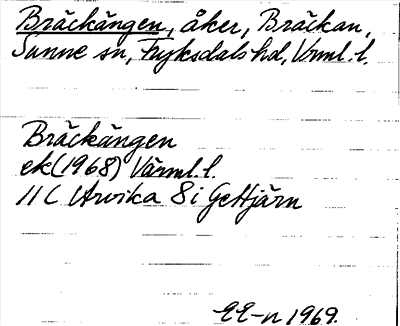 Bräckängen, åker, Bräckan,
Sunne sn, Fryksdals hd, Vrml. l.
Bräckängen
ek(1968) Värml. l.
11 C Arvika 8 i Gettjärn
EE-n 1969.